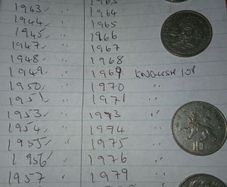 1943 " 1964
1944 " 1965
1945 " 1966
1947 " 1967
1948 " 1968
1949 " 1969
1950 " 1970 "
1951 " 1971 "
1953 " 1973 "
1954 " 1974 "
1955 " 1975 "
1956 " 1976 "
1957 " 1979 "
10